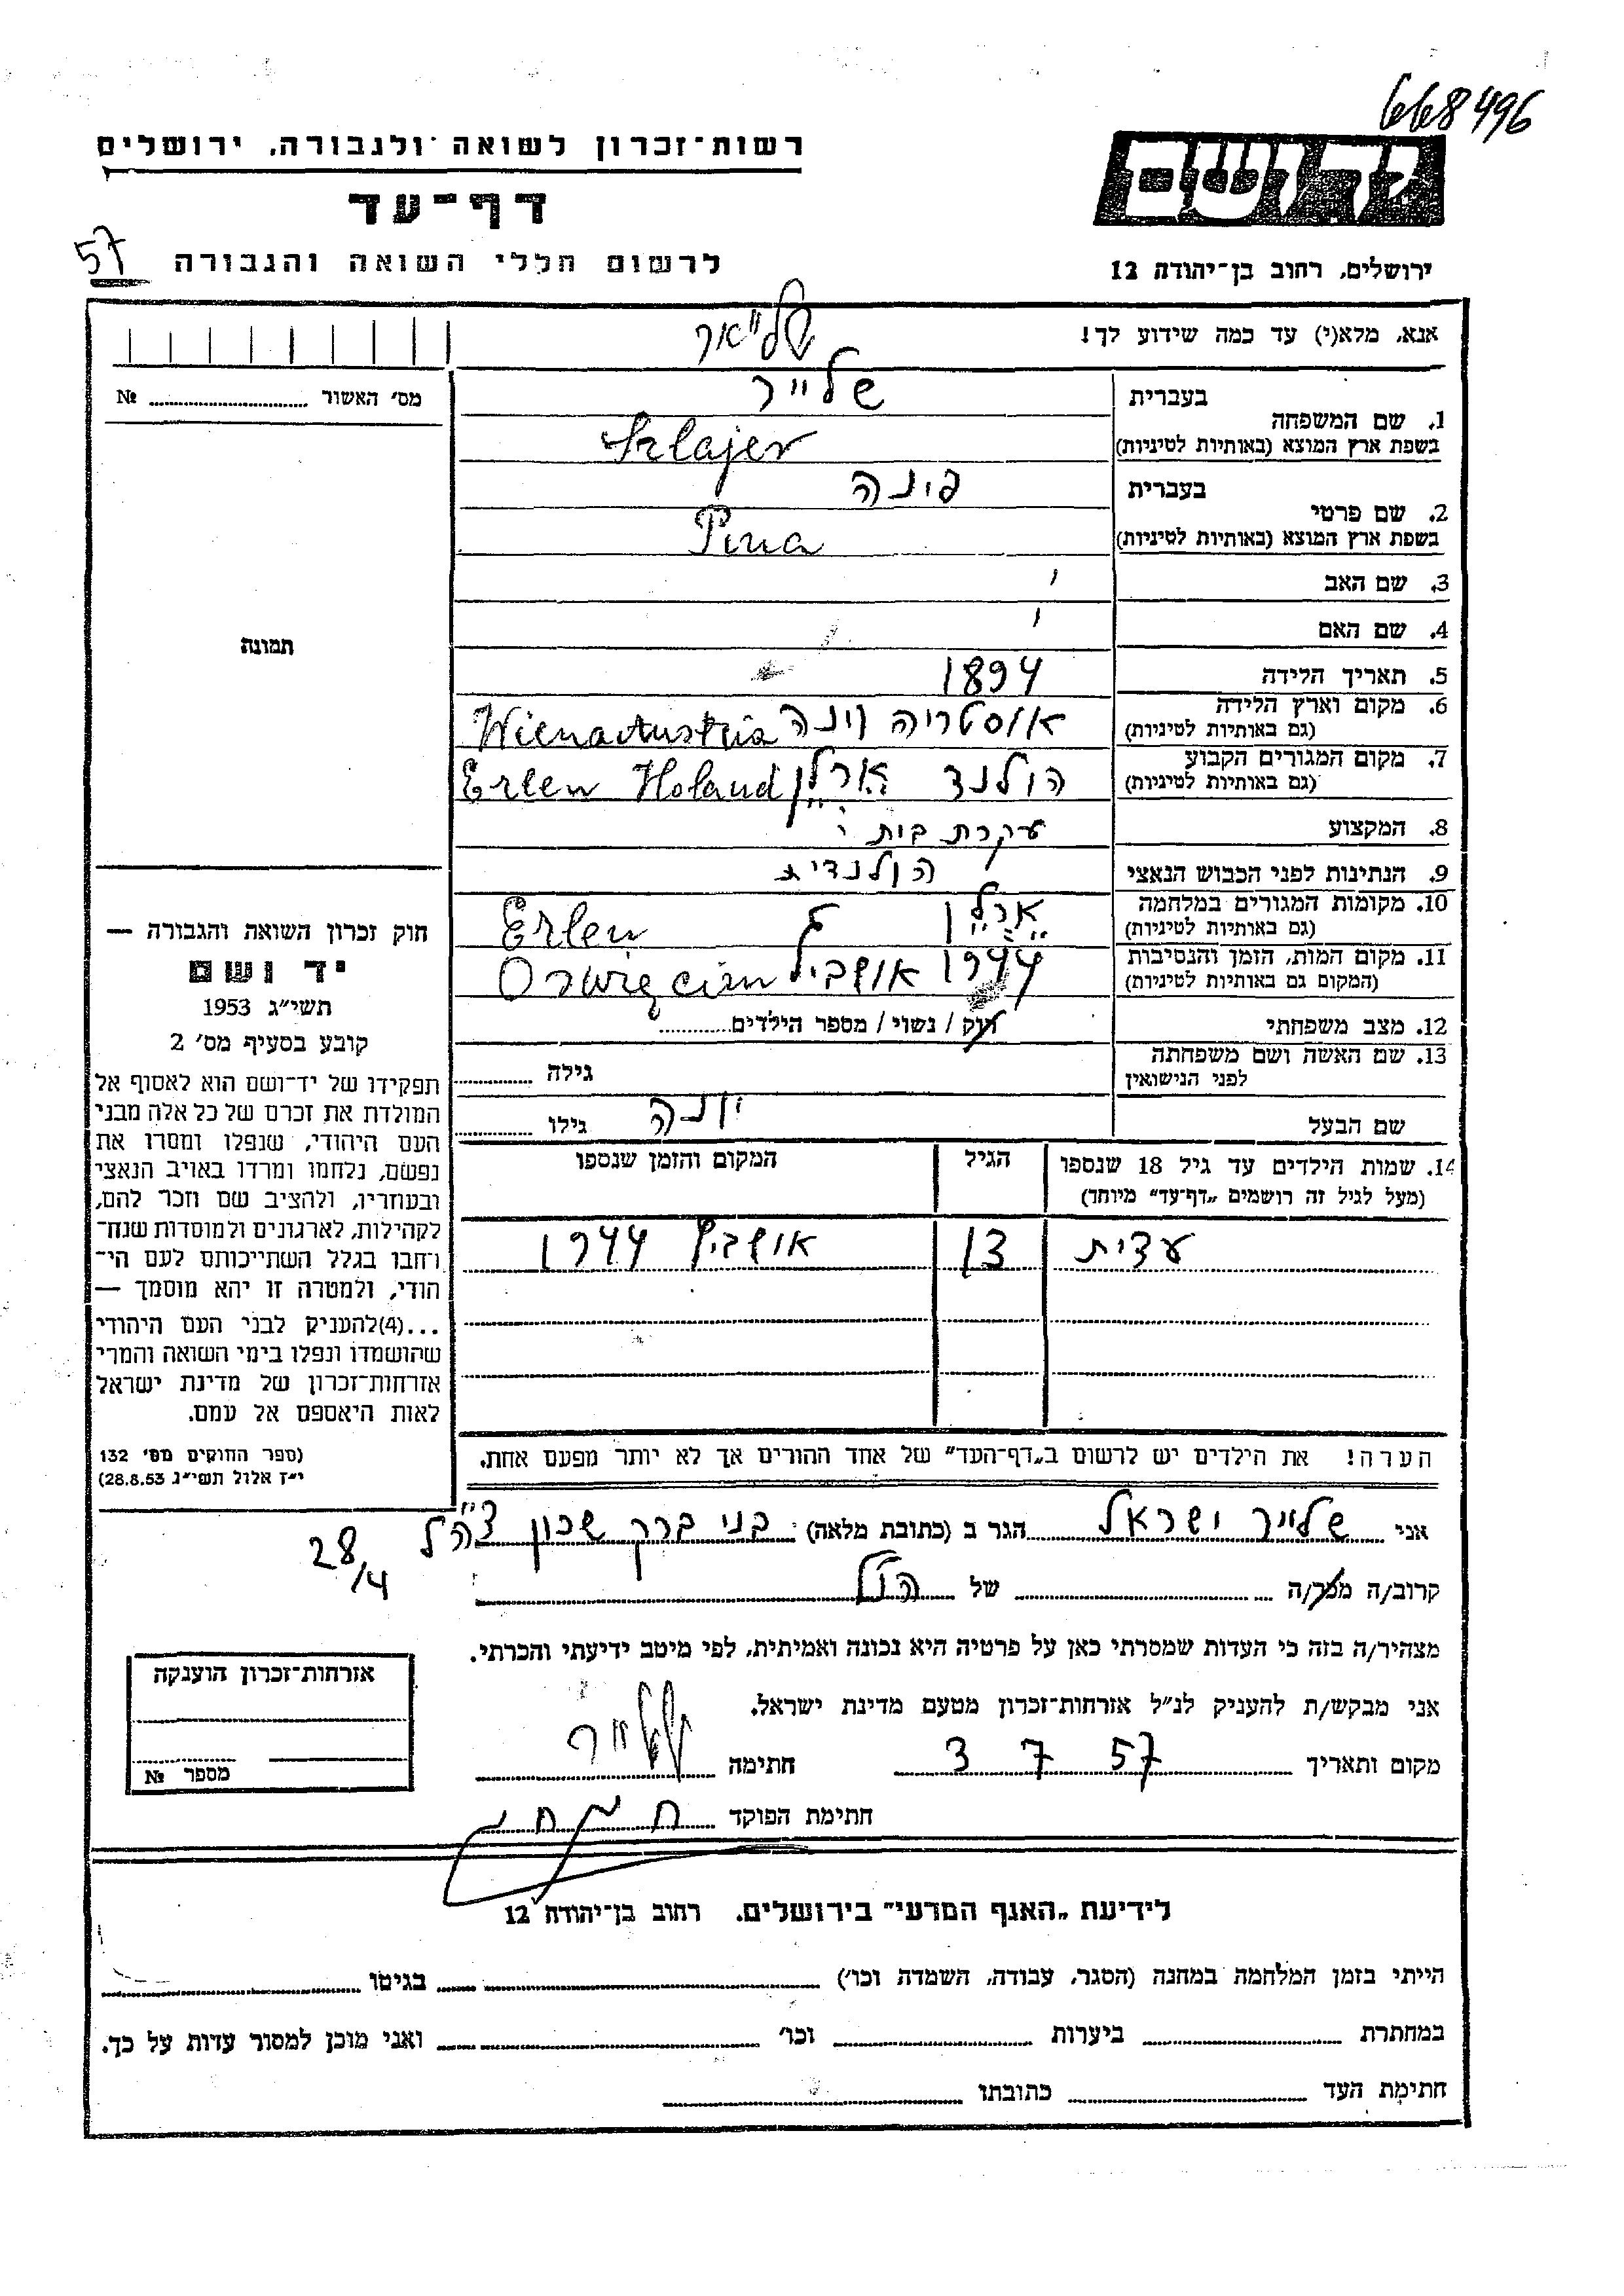 668496
רשות־זכרון לשואה ולגבורה, ירושלים
יד ושם
דף־עד
ירושלים, רחוב בן־יהודה 12
לרשום חללי השואה והגבורה
57
אנא, מלא(י) עד כמה שידוע לך!
שלייאר
מס' האשור № 
בעברית שלייר
1. שם המשפחה
בשפת ארץ המוצא (באותיות לטיניות) Szlajer
בעברית פינה
2. שם פרטי
בשפת ארץ המוצא (באותיות לטיניות) Pina
3. שם האב
4. שם האם
תמונה
5. תאריך הלידה 1894
6. מקום וארץ הלידה אוסטריה וינה Wiena Austria
(גם באותיות לטיניות)
7. מקום המגורים הקבוע הולנד ארלן Erlen Holand
(גם באותיות לטיניות)
8. המקצוע עקרת בית
9. הנתינות לפני הכבוש הנאצי הולנדית
10. מקומות המגורים במלחמה ארלן Erlen
(גם באותיות לטיניות)
11. מקום המות, הזמן והנסיבות 1944 אושביץ Oswięcim
(המקום גם באותיות לטיניות)
12. מצב משפחתי רוק / נשוי / מספר הילדים
13. שם האשה ושם משפחתה
לפני הנישואין גילה
שם הבעל יונה גילו
14. שמות הילדים עד גיל 18 שנספו הגיל המקום והזמן שנספו
(מעל לגיל זה רושמים „דף־עד” מיוחד)
עדית 13 אושביץ 1944
הערה! את הילדים יש לרשום ב„דף־העד” של אחד ההורים אך לא יותר מפעם אחת.
חוק זכרון השואה והגבורה —
יד ושם
תשי״ג 1953
קובע בסעיף מס' 2
תפקידו של יד־ושם הוא לאסוף אל
המולדת את זכרם של כל אלה מבני
העם היהודי, שנפלו ומסרו את
נפשם, נלחמו ומרדו באויב הנאצי
ובעוזריו, ולהציב שם וזכר להם,
לקהילות, לארגונים ולמוסדות שנח־
רחבו בגלל השתייכותם לעם הי־
הודי, ולמטרה זו יהא מוסמך —
...(4)להעניק לבני העם היהודי
שהושמדו ונפלו בימי השואה והמרי
אזרחות־זכרון של מדינת ישראל
לאות היאספם אל עמם.
(ספר החוקים מס' 132
י״ז אלול תשי״ג 28.8.53)
אני שלייר ישראל הגר ב (כתובת מלאה) בני ברק שכון צה״ל
28/4
קרוב/ה מכר/ה של הנ״ל
מצהיר/ה בזה כי העדות שמסרתי כאן על פרטיה היא נכונה ואמיתית, לפי מיטב ידיעתי והכרתי.
אני מבקש/ת להעניק לנ״ל אזרחות־זכרון מטעם מדינת ישראל.
מקום ותאריך 3 7 57 חתימה שלייר
חתימת הפוקד
אזרחות־זכרון הוענקה
מספר №
לידיעת „האגף המדעי” בירושלים, רחוב בן־יהודה 12
הייתי בזמן המלחמה במחנה (הסגר, עבודה, השמדה וכו') בגיטו
במחתרת ביערות וכו' ואני מוכן למסור עדות על כך.
חתימת העד כתובתו